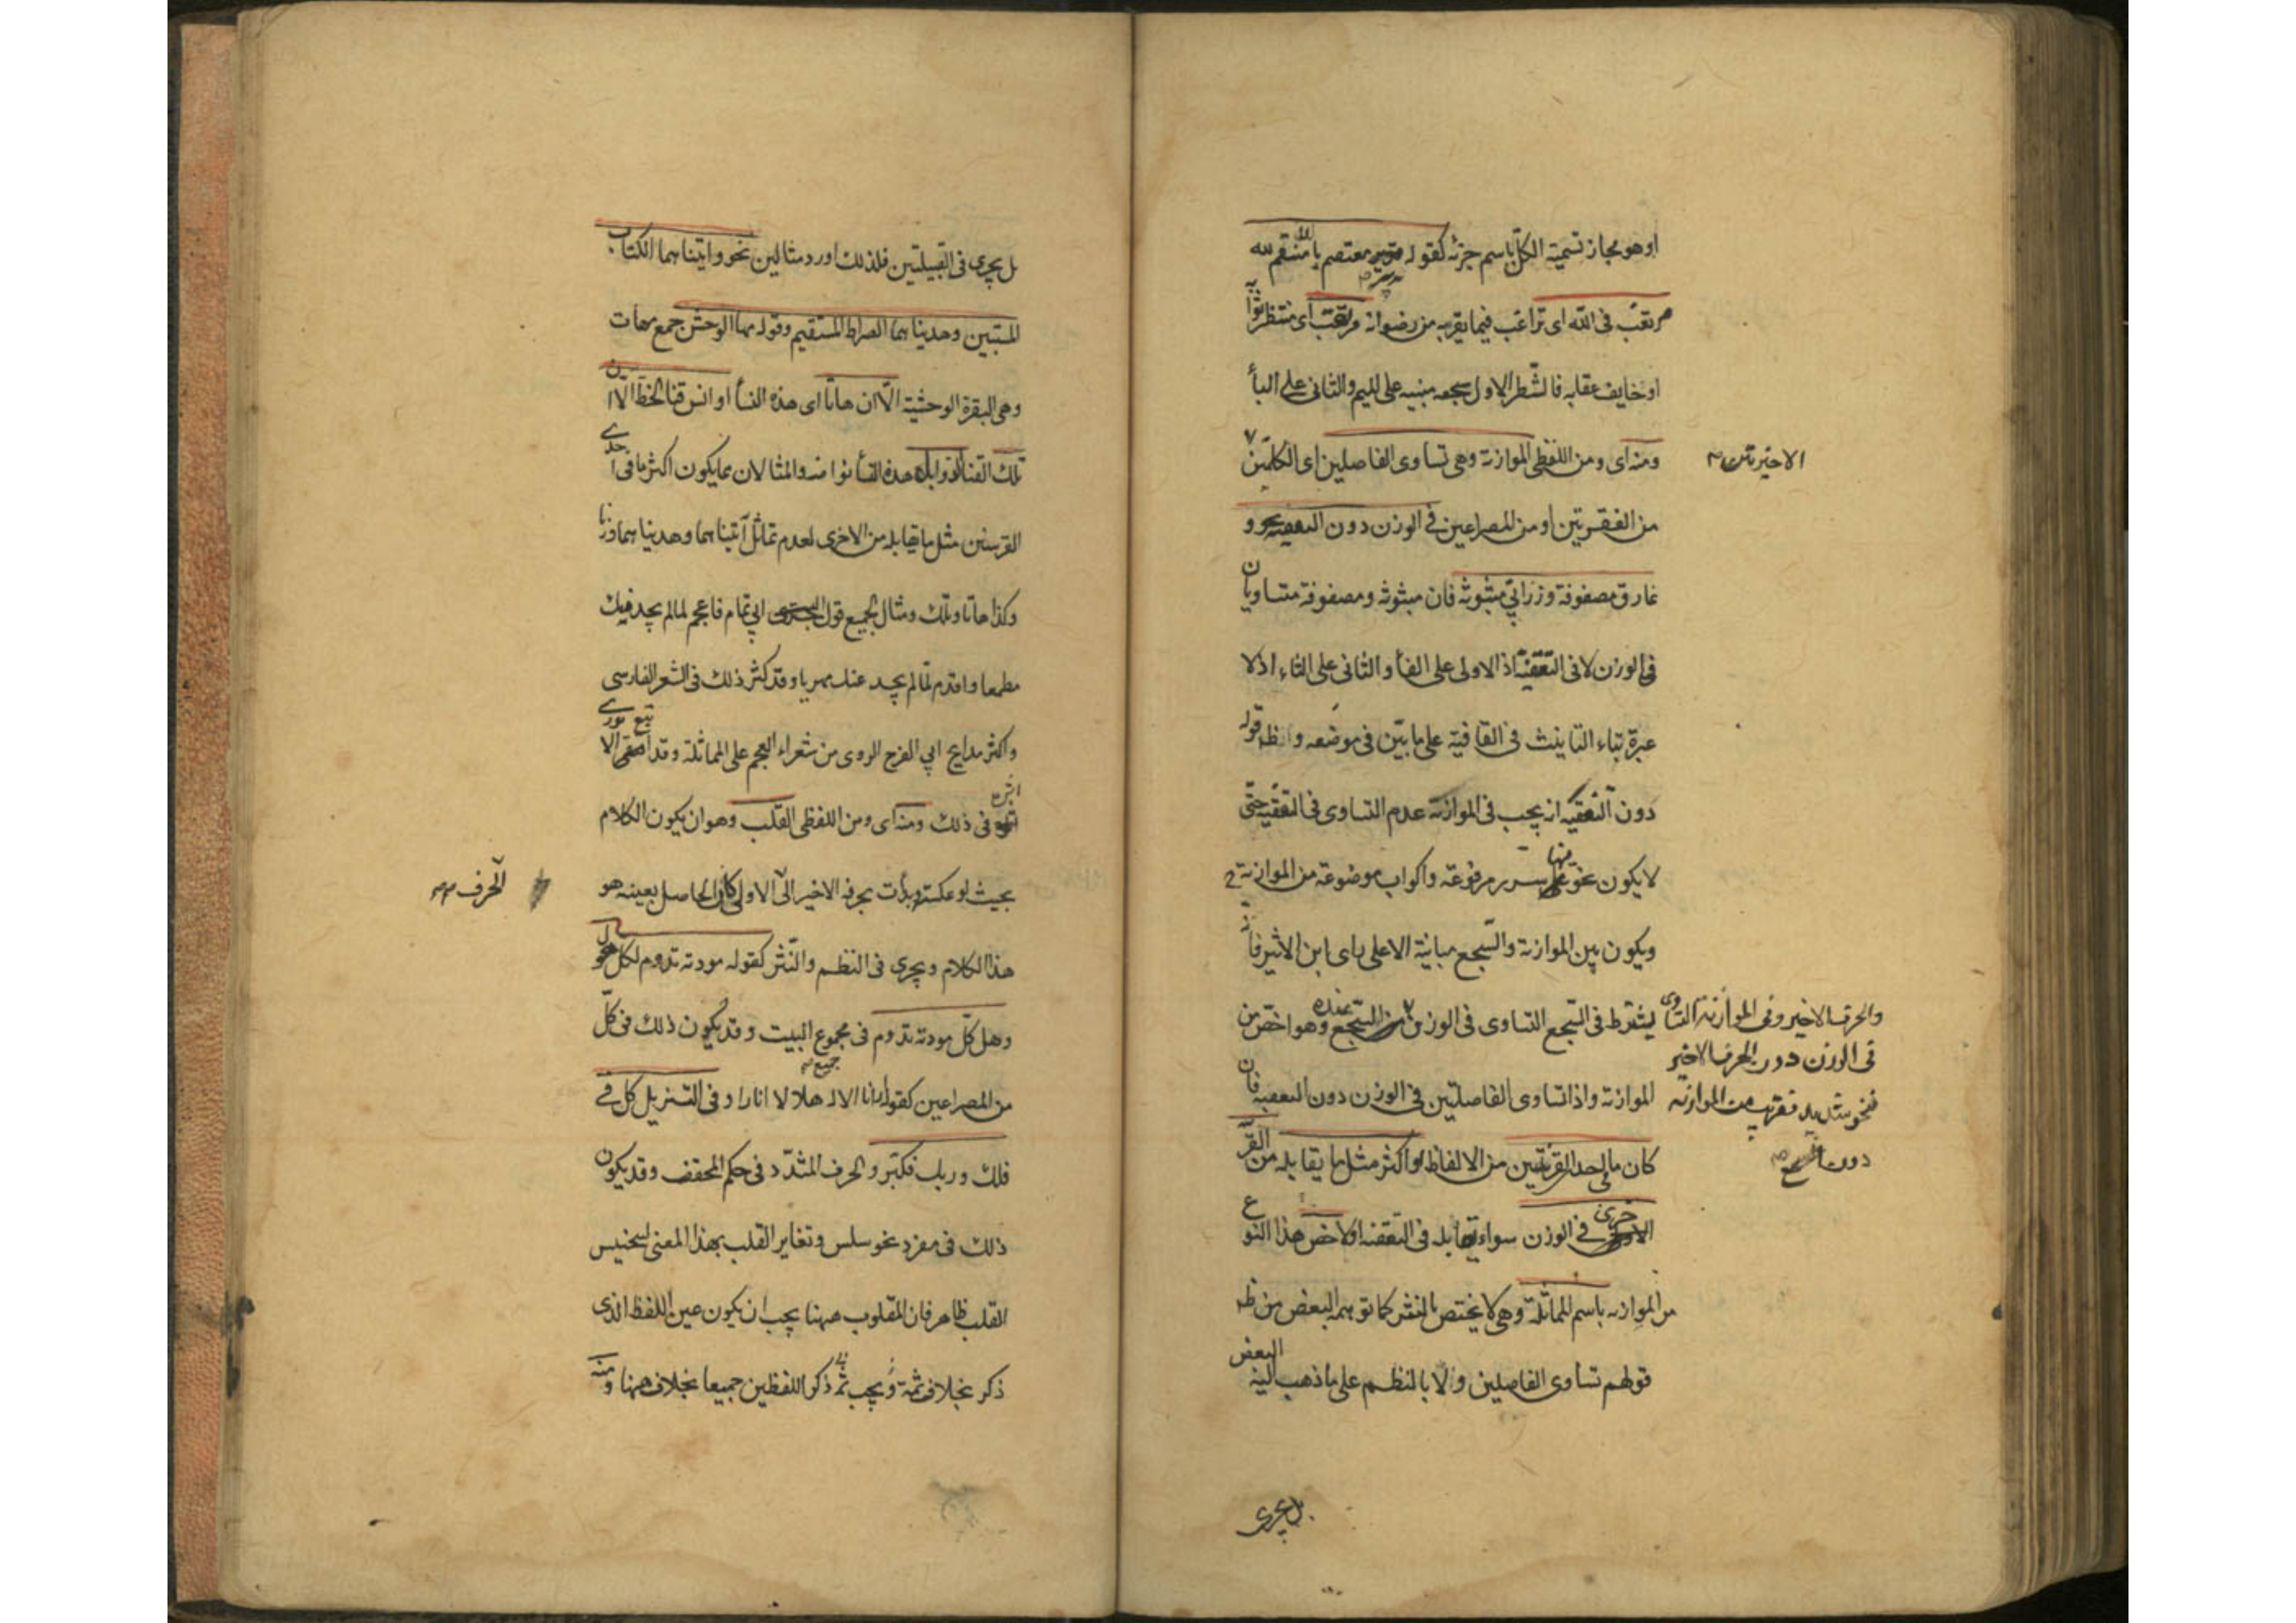 او هو مجاز تسمية الكل باسم جزئه كقوله تدبير معتصم بالله منتقم لله
مرتغب في الله اى تراغب فيما يقربه من رضوانه مرتقب اى منتظر ثوابه
او خايف عقابه فالشطر الاول سجعه مبنيه على الميم والثاني على البأ
ومنه اى ومن اللفظى الموازنة وهى تساوى الفاصلين اى الكلمتين
الاخيرتين
من الفقرتين او من المصراعين في الوزن دون التقفية نحو و
نمارق مصفوفة وزرابي مبثوثه فان مبثوثه ومصفوفة متساويان
في الوزن لا في التقفية اذ الاولى على الفأ والثاني على الثاء اذ لا
عبرة بتاء التانيث في القافية على ما بين في موضعه وظ قوله
دون التقفيه انه يجب في الموازنة عدم التساوى في التقفيه حتى
لا يكون نحو فيها سرر مرفوعة واكواب موضوعة من الموازنة
ويكون بين الموازنة والسجع مباينة الا على راى ابن الاثير فانه
يشترط في السجع التساوى في الوزن والحرف الاخير وفي الموازنة التساوى
في الوزن دون الحرف الاخير
فنحو شديد وقريب من الموازنة
دون السجع
عنده وهو اخص من
الموازنة واذا تساوى الفاصلتين في الوزن دون التقفية فان
كان ما في احد القرينتين من الالفاظ او اكثر مثل ما يقابله من القر
الاخرى في الوزن سواء يقابله في التقفيه او لا خص هذا النوع
من الموازنه باسم المماثلة وهى لا يختص بالنثر كما توهمه البعض من ظ
قولهم تساوى الفاصلين ولا بالنظم على ما ذهب اليه البعض
بل يجرى
بل يجرى في القبيلتين فلذلك اورد مثالين نحو واتيناهما الكتاب
المستبين وهديناهما الصراط المستقيم وقوله مها الوحش جمع مهات
وهى البقرة الوحشية الا ان هاتا اى هذه النسأ اوانس قنا الخط الا ان
تلك القنا ذوابل هذه النسأ نوا منه والمثالان مما يكون اكثر ما في احدى
القرينين مثل ما يقابله من الاخرى لعدم تماثل آتيناهما وهديناهما وزنا
وكذا هاتا وتلك ومثال الجميع قول ابي تمام فاحجم لما لم يجد فيك
مطمعا واقدم لما لم يجد عنك مهربا وقد كثر ذلك في الشعر الفارسى
واكثر مدايح ابي الفرج الروى من شعراء العجم على المماثلة وقد اقتفى الانورى
اثره في ذلك ومنه اى ومن اللفظى القلب وهو ان يكون الكلام
بحيث لو عكسته وبدأت بحرفه الاخير الى الاول كان الحاصل بعينه هو
الحرف
هذا الكلام ويجرى في النظم والنثر كقوله مودته تدوم لكل هول
وهل كل مودته تدوم في مجموع البيت وقد يكون ذلك في كل
من المصراعين كقوله ارانا الاله هلالا انارا وفي التنزيل كل في
فلك وربك فكبر والحرف المشدد في حكم المخفف وقد يكون
ذلك في مفرد نحو سلس وتغاير القلب بهذا المعنى لتجنيس
القلب ظاهر فان المقلوب ههنا يجب ان يكون عين اللفظ الذى
ذكر بخلاف ثمة ويجب ثم ذكر اللفظين جميعا بخلاف ههنا ومنه